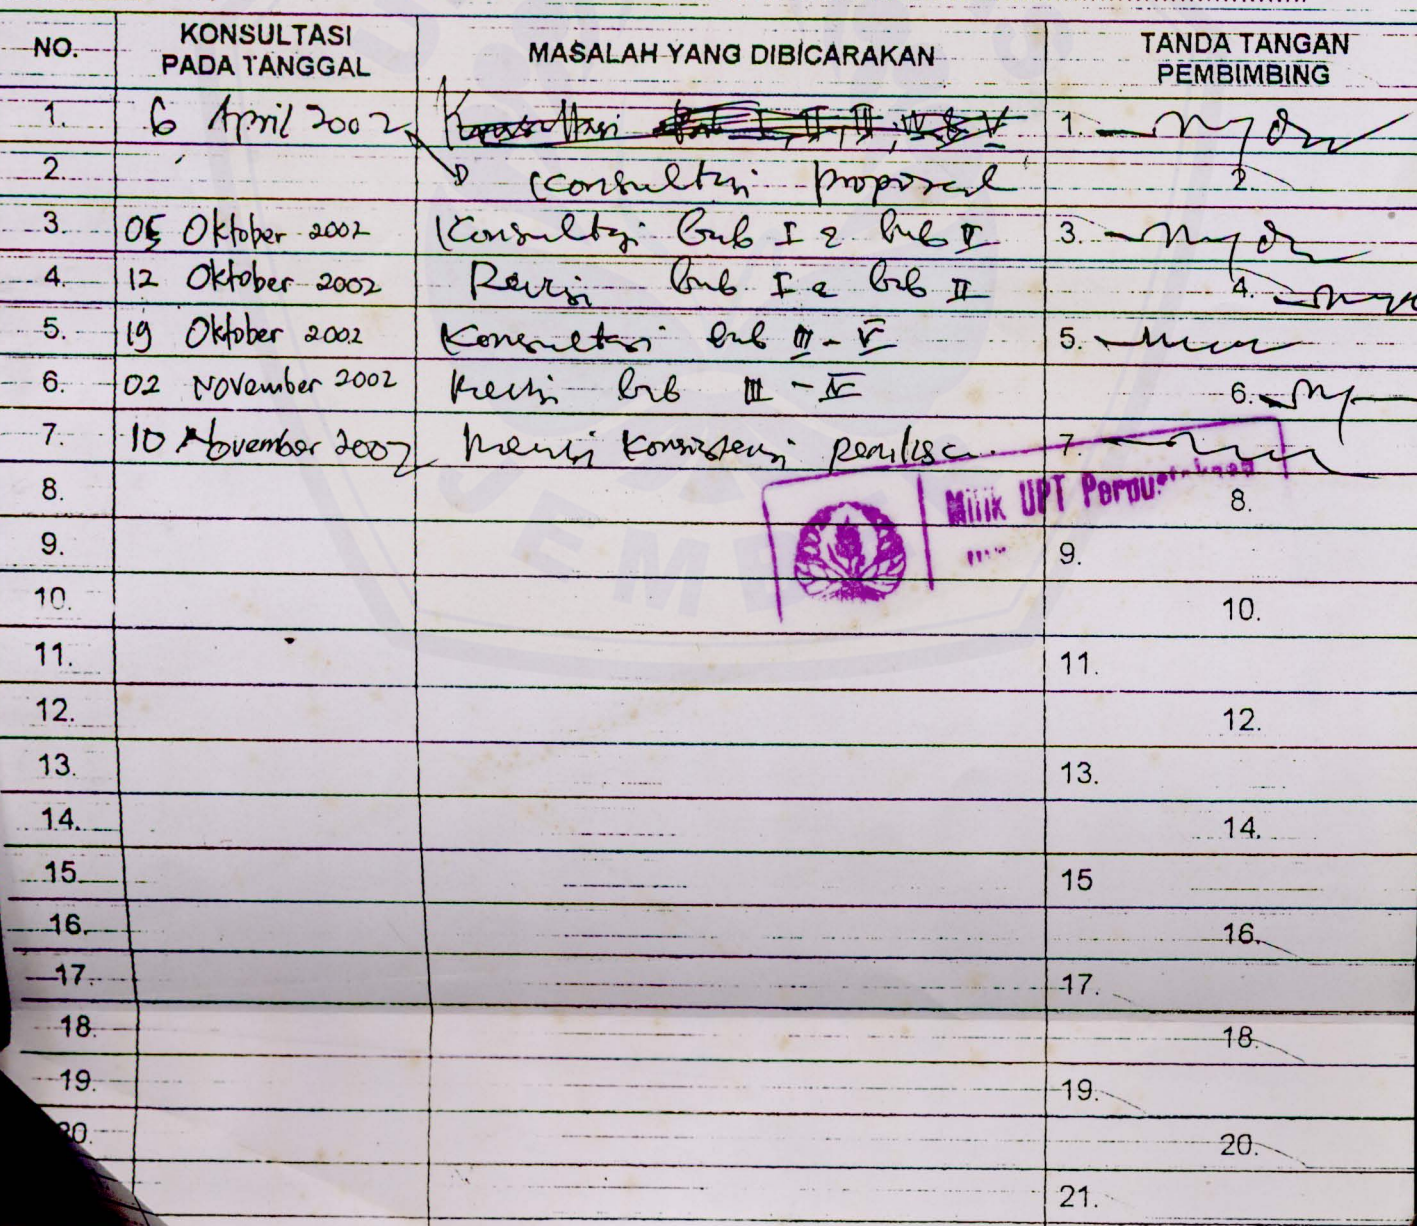 NO. KONSULTASI PADA TANGGAL MASALAH YANG DIBICARAKAN TANDA TANGAN PEMBIMBING
1. 6 April 2002 Konsultasi Bab I, II, III, IV & V 1.
2 Konsultasi proposal 2
3. 05 Oktober 2002 Konsultasi bab I & bab II 3.
4. 12 Oktober 2002 Revisi bab I & bab II 4.
5. 19 Oktober 2002 Konsultasi bab III - V 5.
6. 02 November 2002 Revisi bab III - IV 6.
7. 10 November 2002 Konsistensi 7.
Milik UPT Perpustakaan
8. 8.
9. 9.
10. 10.
11. 11.
12. 12.
13. 13.
14. 14.
15 15
16. 16.
17. 17.
18. 18.
19. 19.
20. 20.
21.
JEMBER